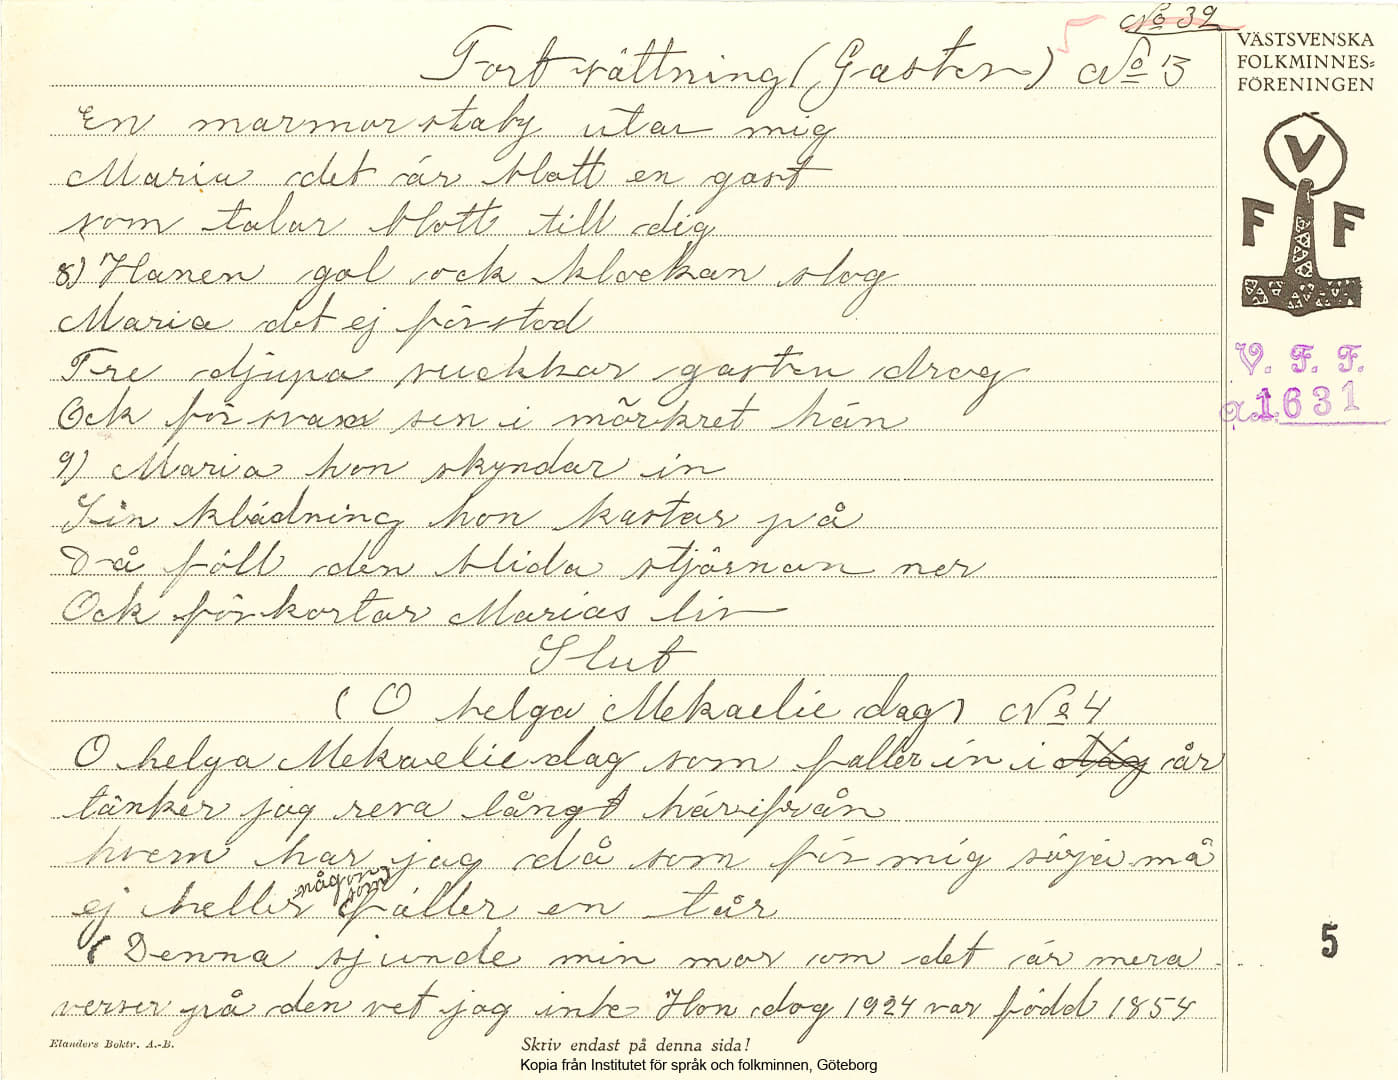 No 39
Fortsättning (Gasten) No 3
VÄSTSVENSKA
FOLKMINNES=
FÖRENINGEN
En marmorstaby utar mig
Maria det är blott en gast
som talar blott till dig
V
F F
8) Hanen gol ock klockan slog
Maria det ej förstod
Tre djupa suckkar gasten drog
V. F. F.
a.1631
Ock försvann sen i mörkret hän
9) Maria hon skyndar in
Sin klädning hon kastar på
Då föll den blida stjärnan ner
Ock förkortar Marias liv
Slut
(O helga Mekaelie dag) No 4
O helga Mekaelie dag som faller in i år
tänker jag resa långt härifrån
hvem har jag då som för mig sörja må
ej heller någon som fäller en tår
5
(Denna sjunde min mor om det är mera
verser på den vet jag inte Hon dog 1924 var född 1854
Elanders Boktr. A.-B.
Skriv endast på denna sida!
Kopia från Institutet för språk och folkminnen, Göteborg